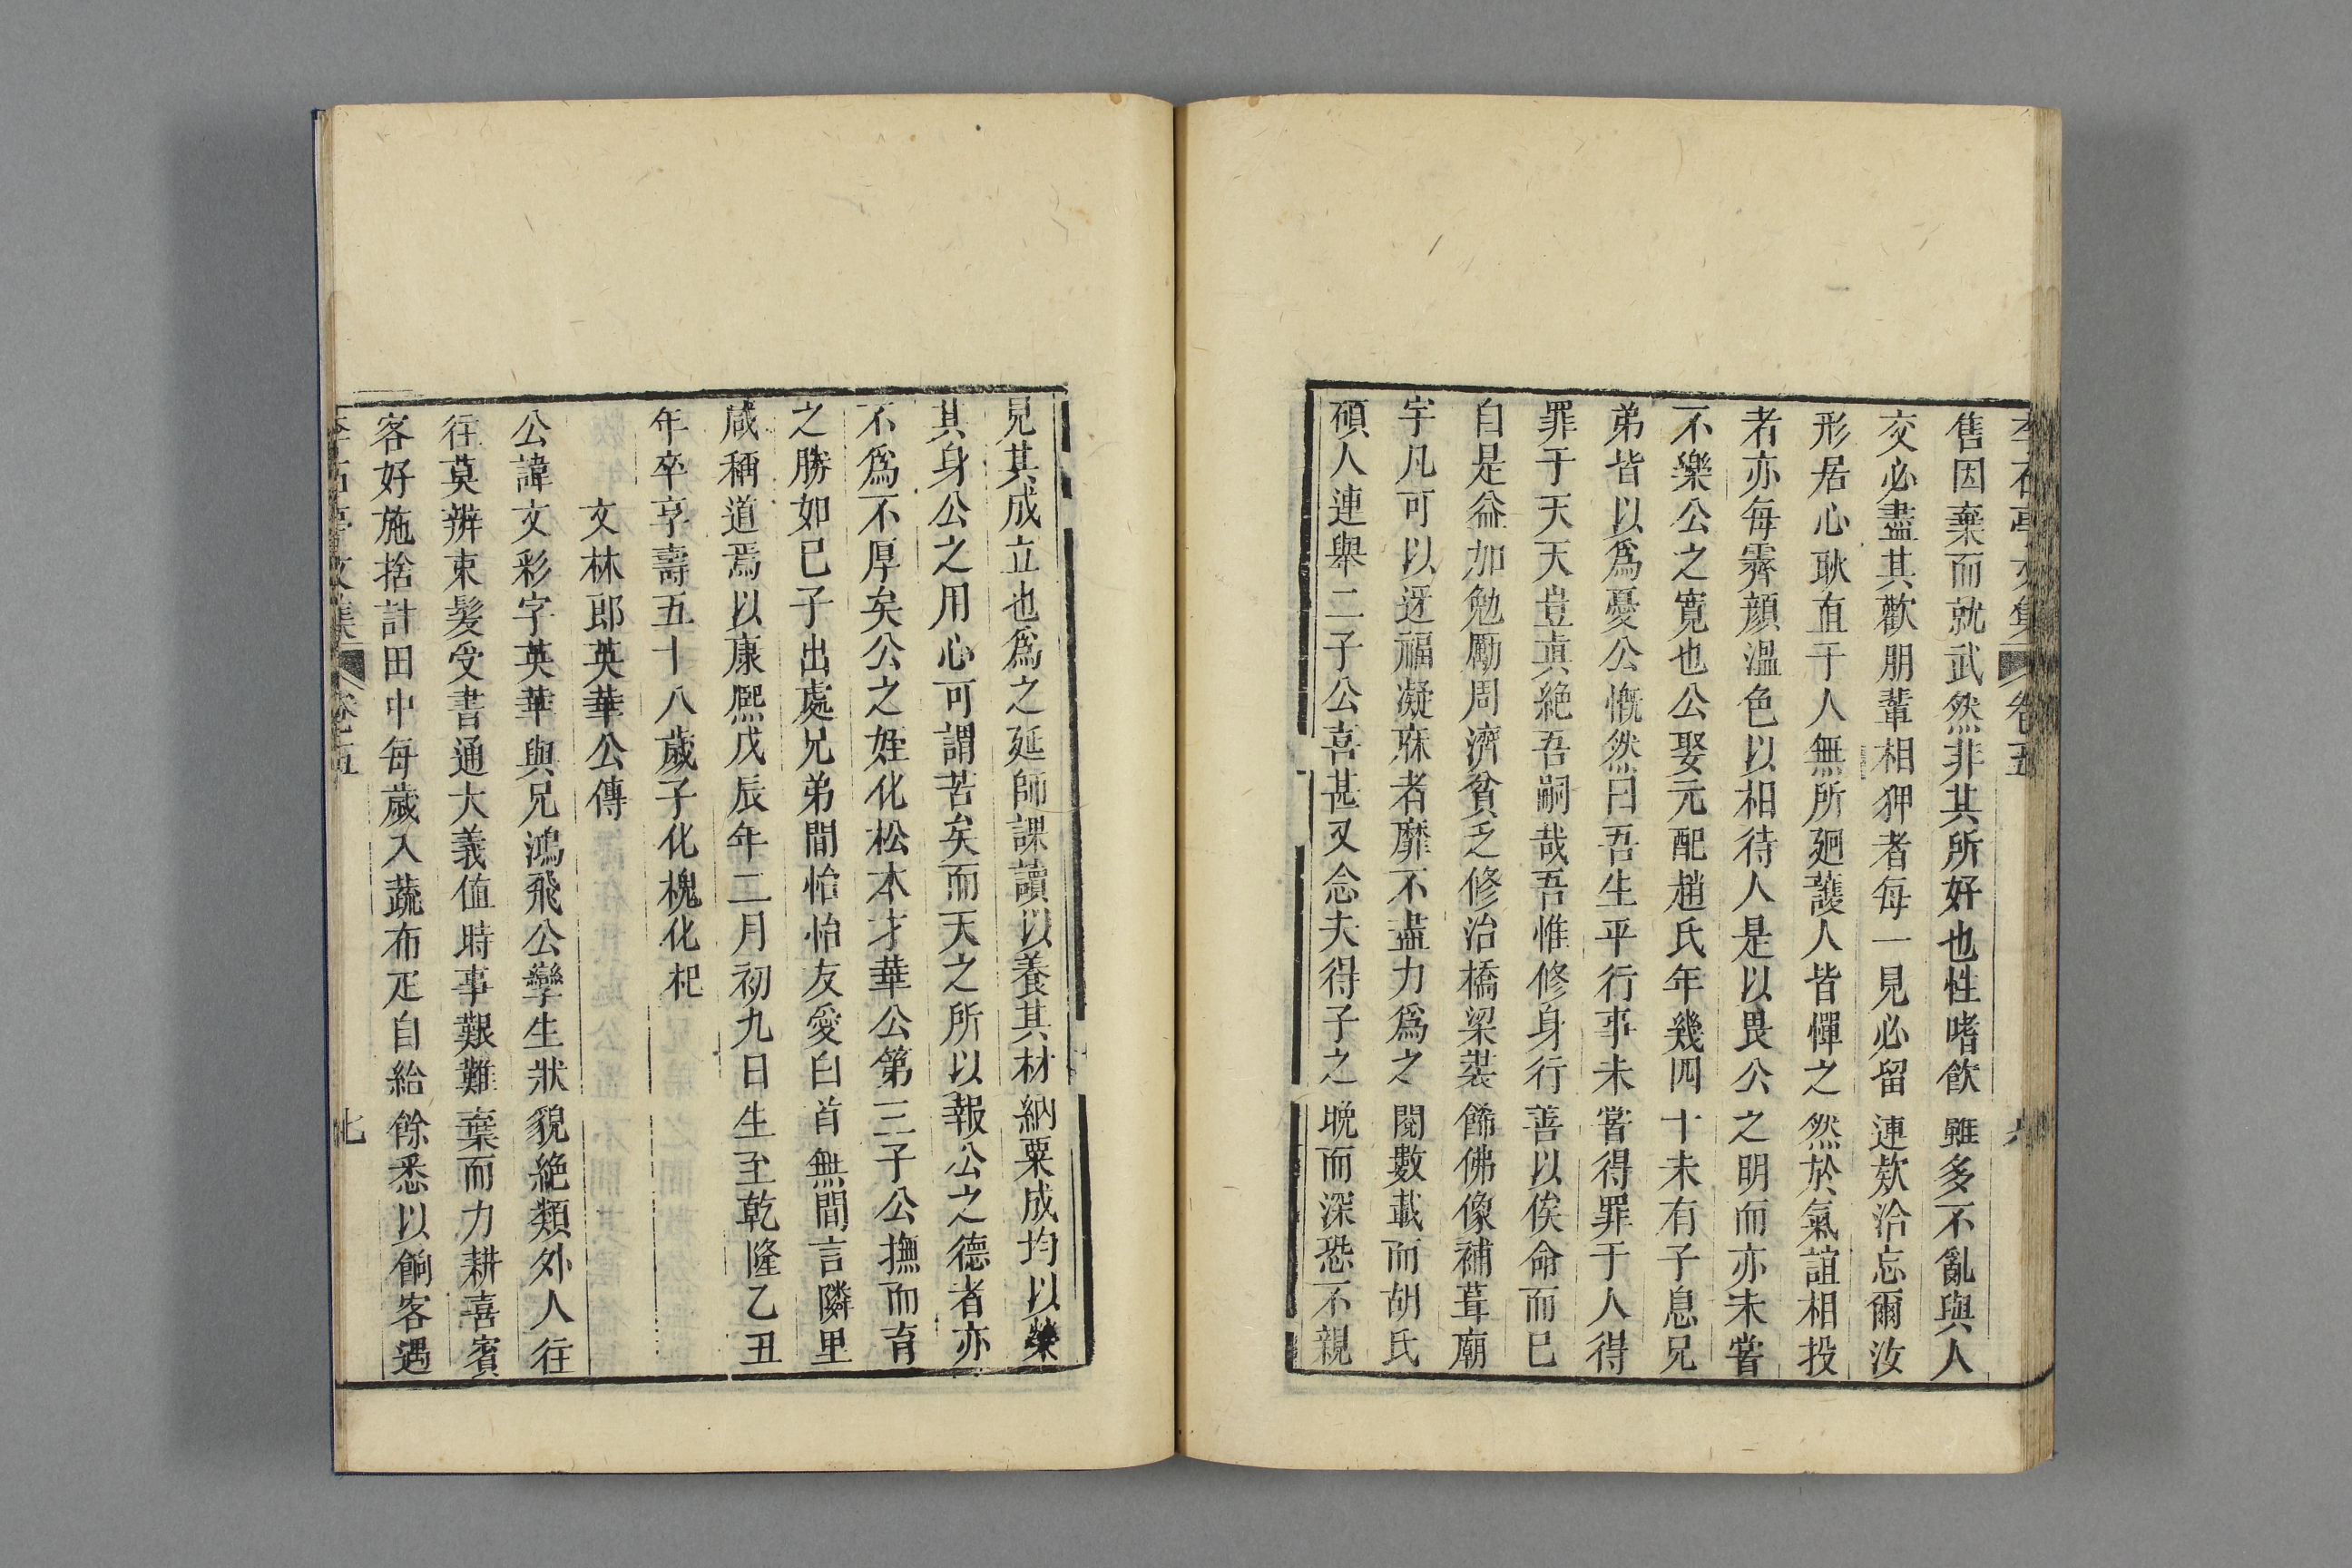 李石亭文集 卷五 六
售因棄而就武然非其所好也性嗜飲雖多不亂與人
交必盡其歡朋輩相狎者每一見必留連欬洽忘爾汝
形居心耿直于人無所廻護人皆憚之然於氣誼相投
者亦每霽顔溫色以相待人是以畏公之明而亦未嘗
不樂公之寛也公娶元配趙氏年幾四十未有子息兄
弟皆以爲憂公慨然曰吾生平行事未嘗得罪于人得
罪于天天豈眞絶吾嗣哉吾惟修身行善以俟命而已
自是益加勉勵周濟貧乏修治橋梁裝餙佛像補葺廟
宇凡可以迓福凝庥者靡不盡力爲之閱數載而胡氏
碩人連舉二子公喜甚又念夫得子之晚而深恐不親
見其成立也爲之延師課讀以養其材納粟成均以榮
其身公之用心可謂苦矣而天之所以報公之德者亦
不爲不厚矣公之姪化松本才華公第三子公撫而育
之勝如已子出處兄弟間怡怡友愛白首無間言隣里
咸稱道焉以康熙戊辰年二月初九日生至乾隆乙丑
年卒享壽五十八歲子化槐化杞
文林郎英華公傳
公諱文彩字英華與兄鴻飛公孿生狀貌絶類外人往
往莫辨束髪受書通大義値時事艱難葉而力耕喜賓
客好施捨計田中每歲入蔬布疋自給餘悉以餉客遇
李石亭文集 卷五 七